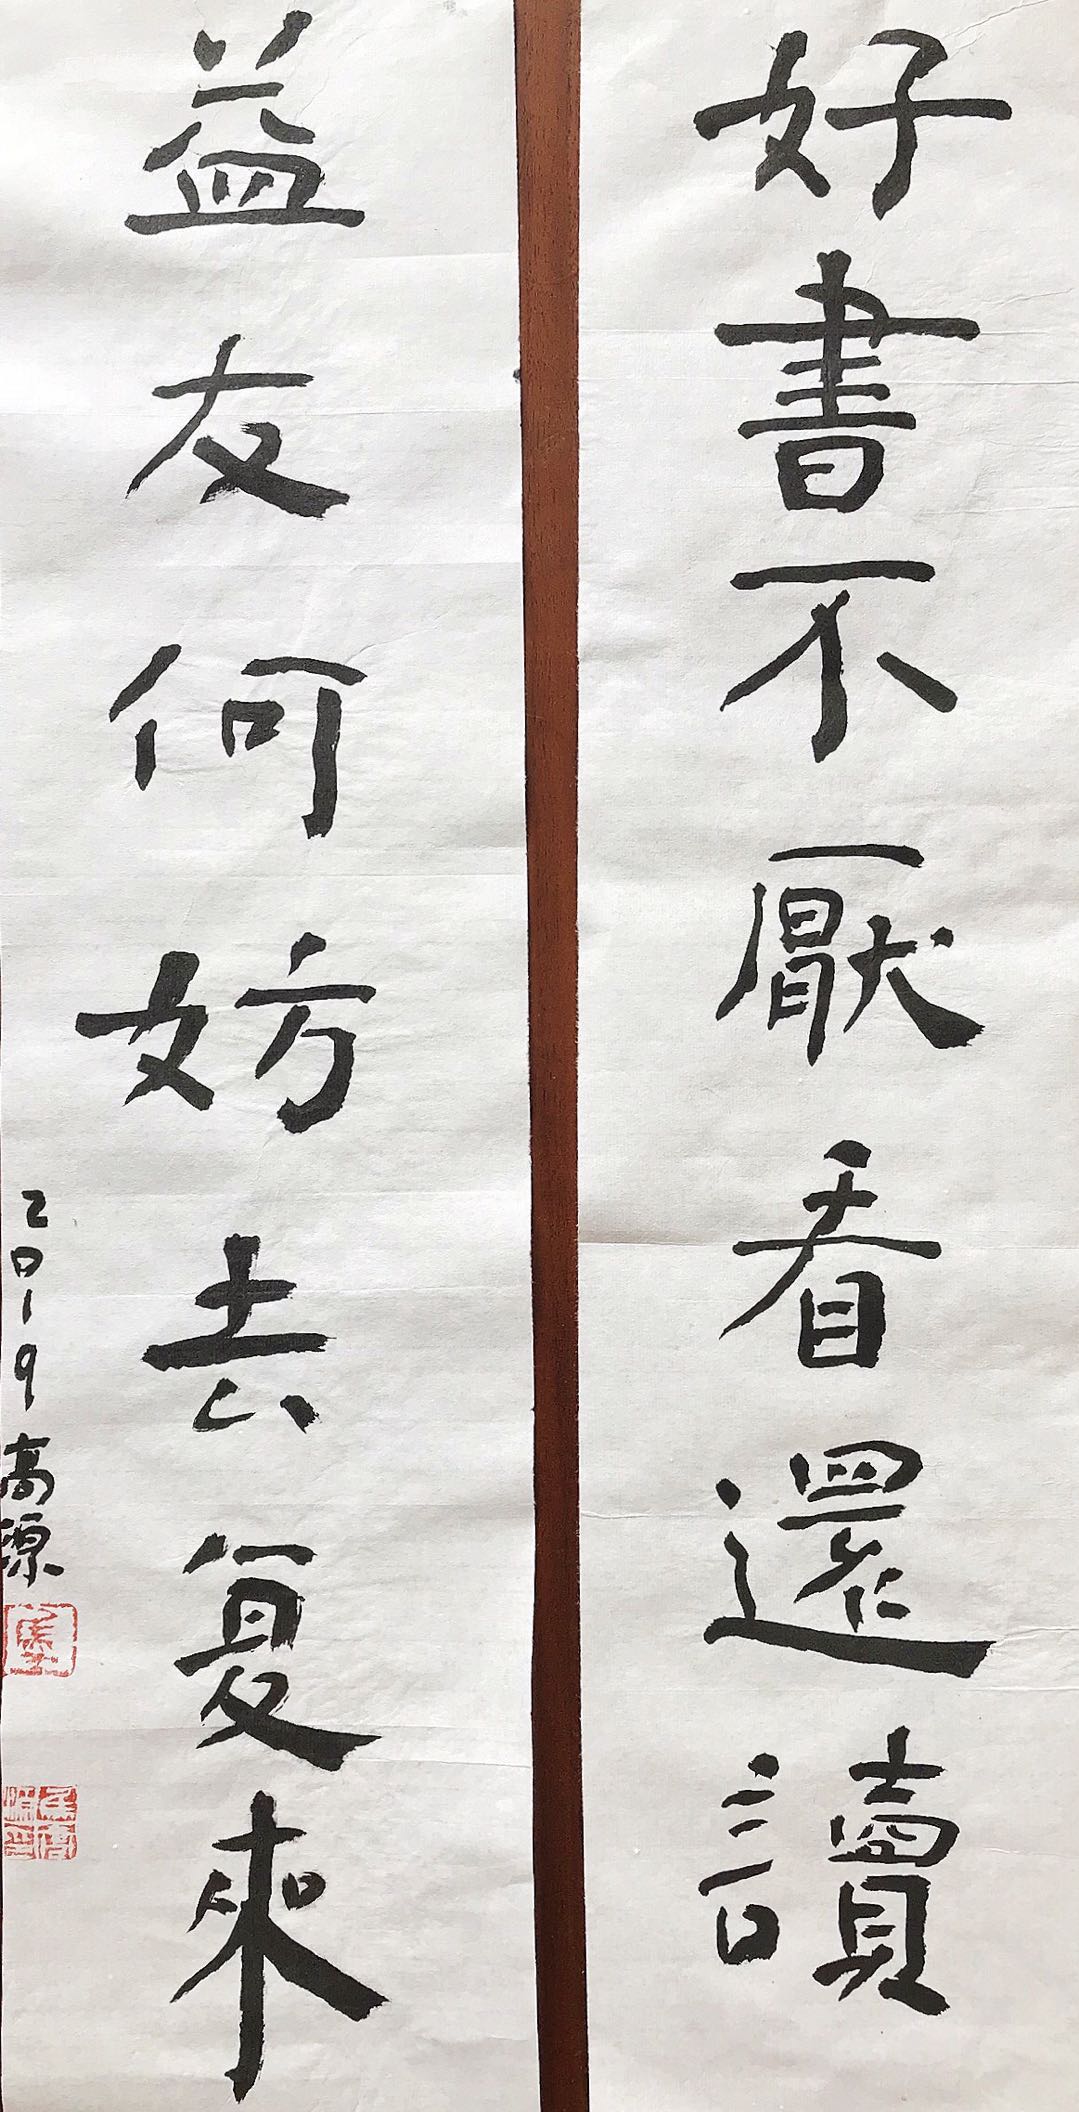 好書不厭看還讀
益友何妨去复來
二〇一9高源